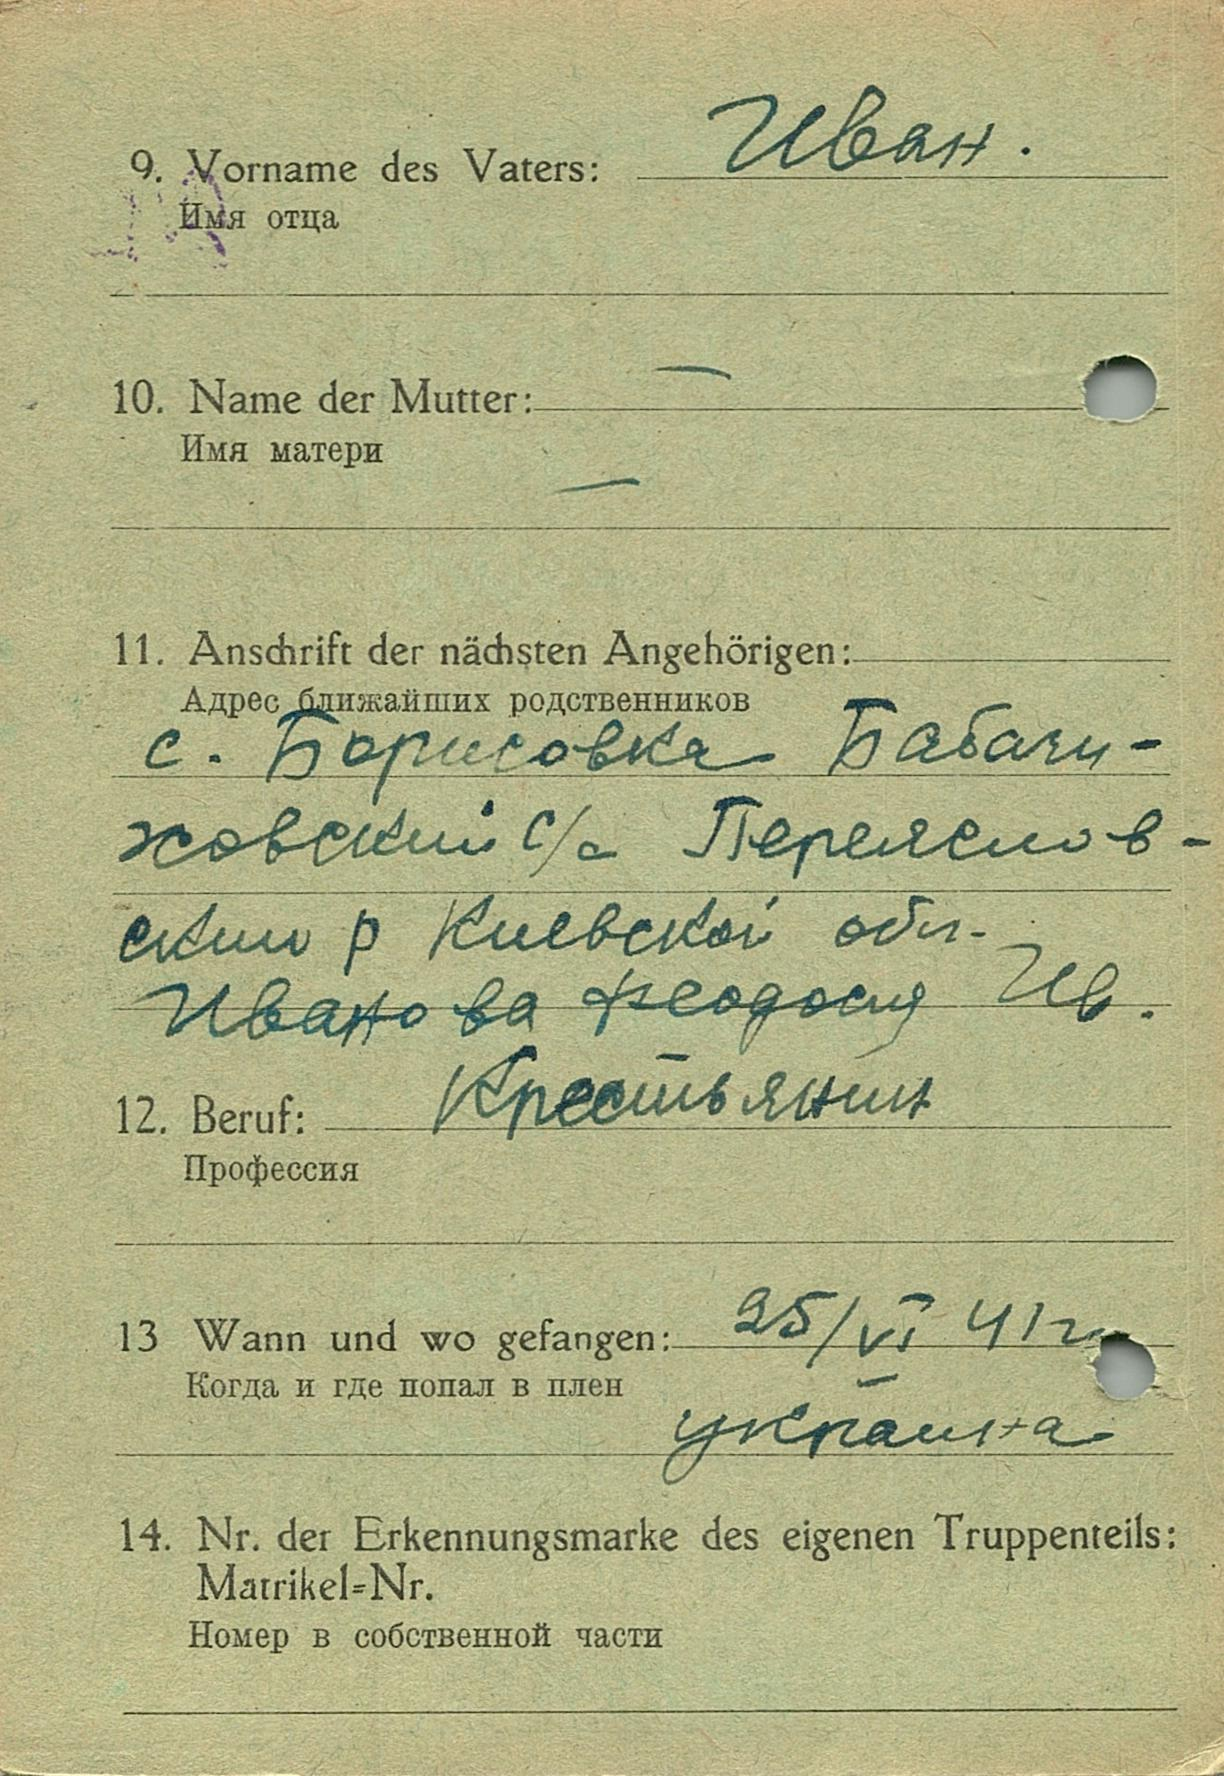 9. Vorname des Vaters: Иван.
Имя отца
10. Name der Mutter: —
Имя матери
—
11. Anschrift der nächsten Angehörigen:
Адрес ближайших родственников
с. Борисовка Бабачи-
ховский с/с Переяслов-
ский р Киевской обл.
Иванова Феодосия Ив.
12. Beruf: Крестьянин
Профессия
13 Wann und wo gefangen: 25/VI 41 г.
Когда и где попал в плен
Украина
14. Nr. der Erkennungsmarke des eigenen Truppenteils:
Matrikel=Nr.
Номер в собственной части